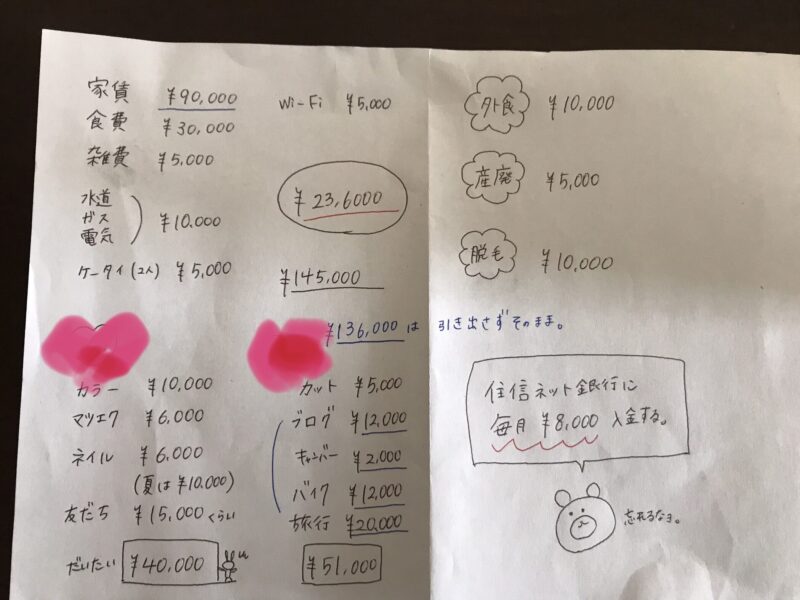 家賃 ¥90,000
食費 ¥30,000
雑費 ¥5,000
水道
ガス
電気
¥10,000
ケータイ(2人) ¥5,000
Wi-Fi ¥5,000
¥23,6000
¥145,000
¥136,000は 引き出さずそのまま。
カラー ¥10,000
マツエク ¥6,000
ネイル ¥6,000
(夏は¥10,000)
友だち ¥15,000くらい
だいたい ¥40,000
カット ¥5,000
ブログ ¥12,000
キャンパー ¥2,000
バイク ¥12,000
旅行 ¥20,000
¥51,000
外食 ¥10,000
産廃 ¥5,000
脱毛 ¥10,000
住信ネット銀行に
毎月 ¥8,000 入金する。
忘れるなよ。